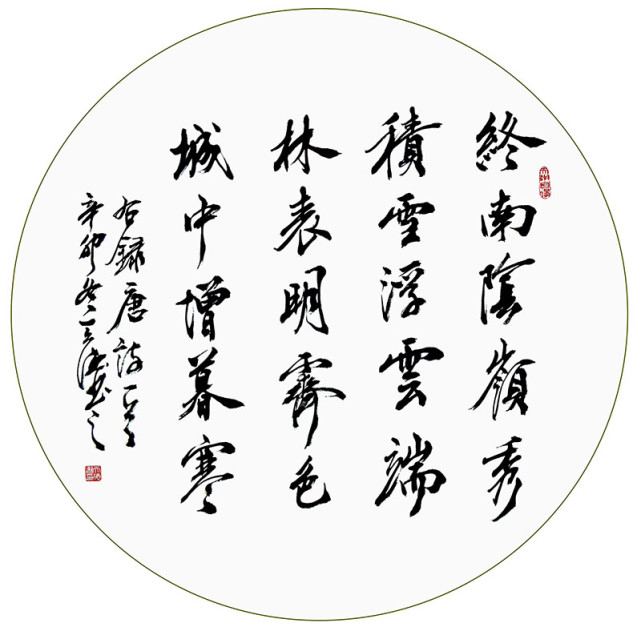 終南陰嶺秀
積雪浮雲端
林表明霽色
城中增暮寒
右録唐詩一首
辛卯冬